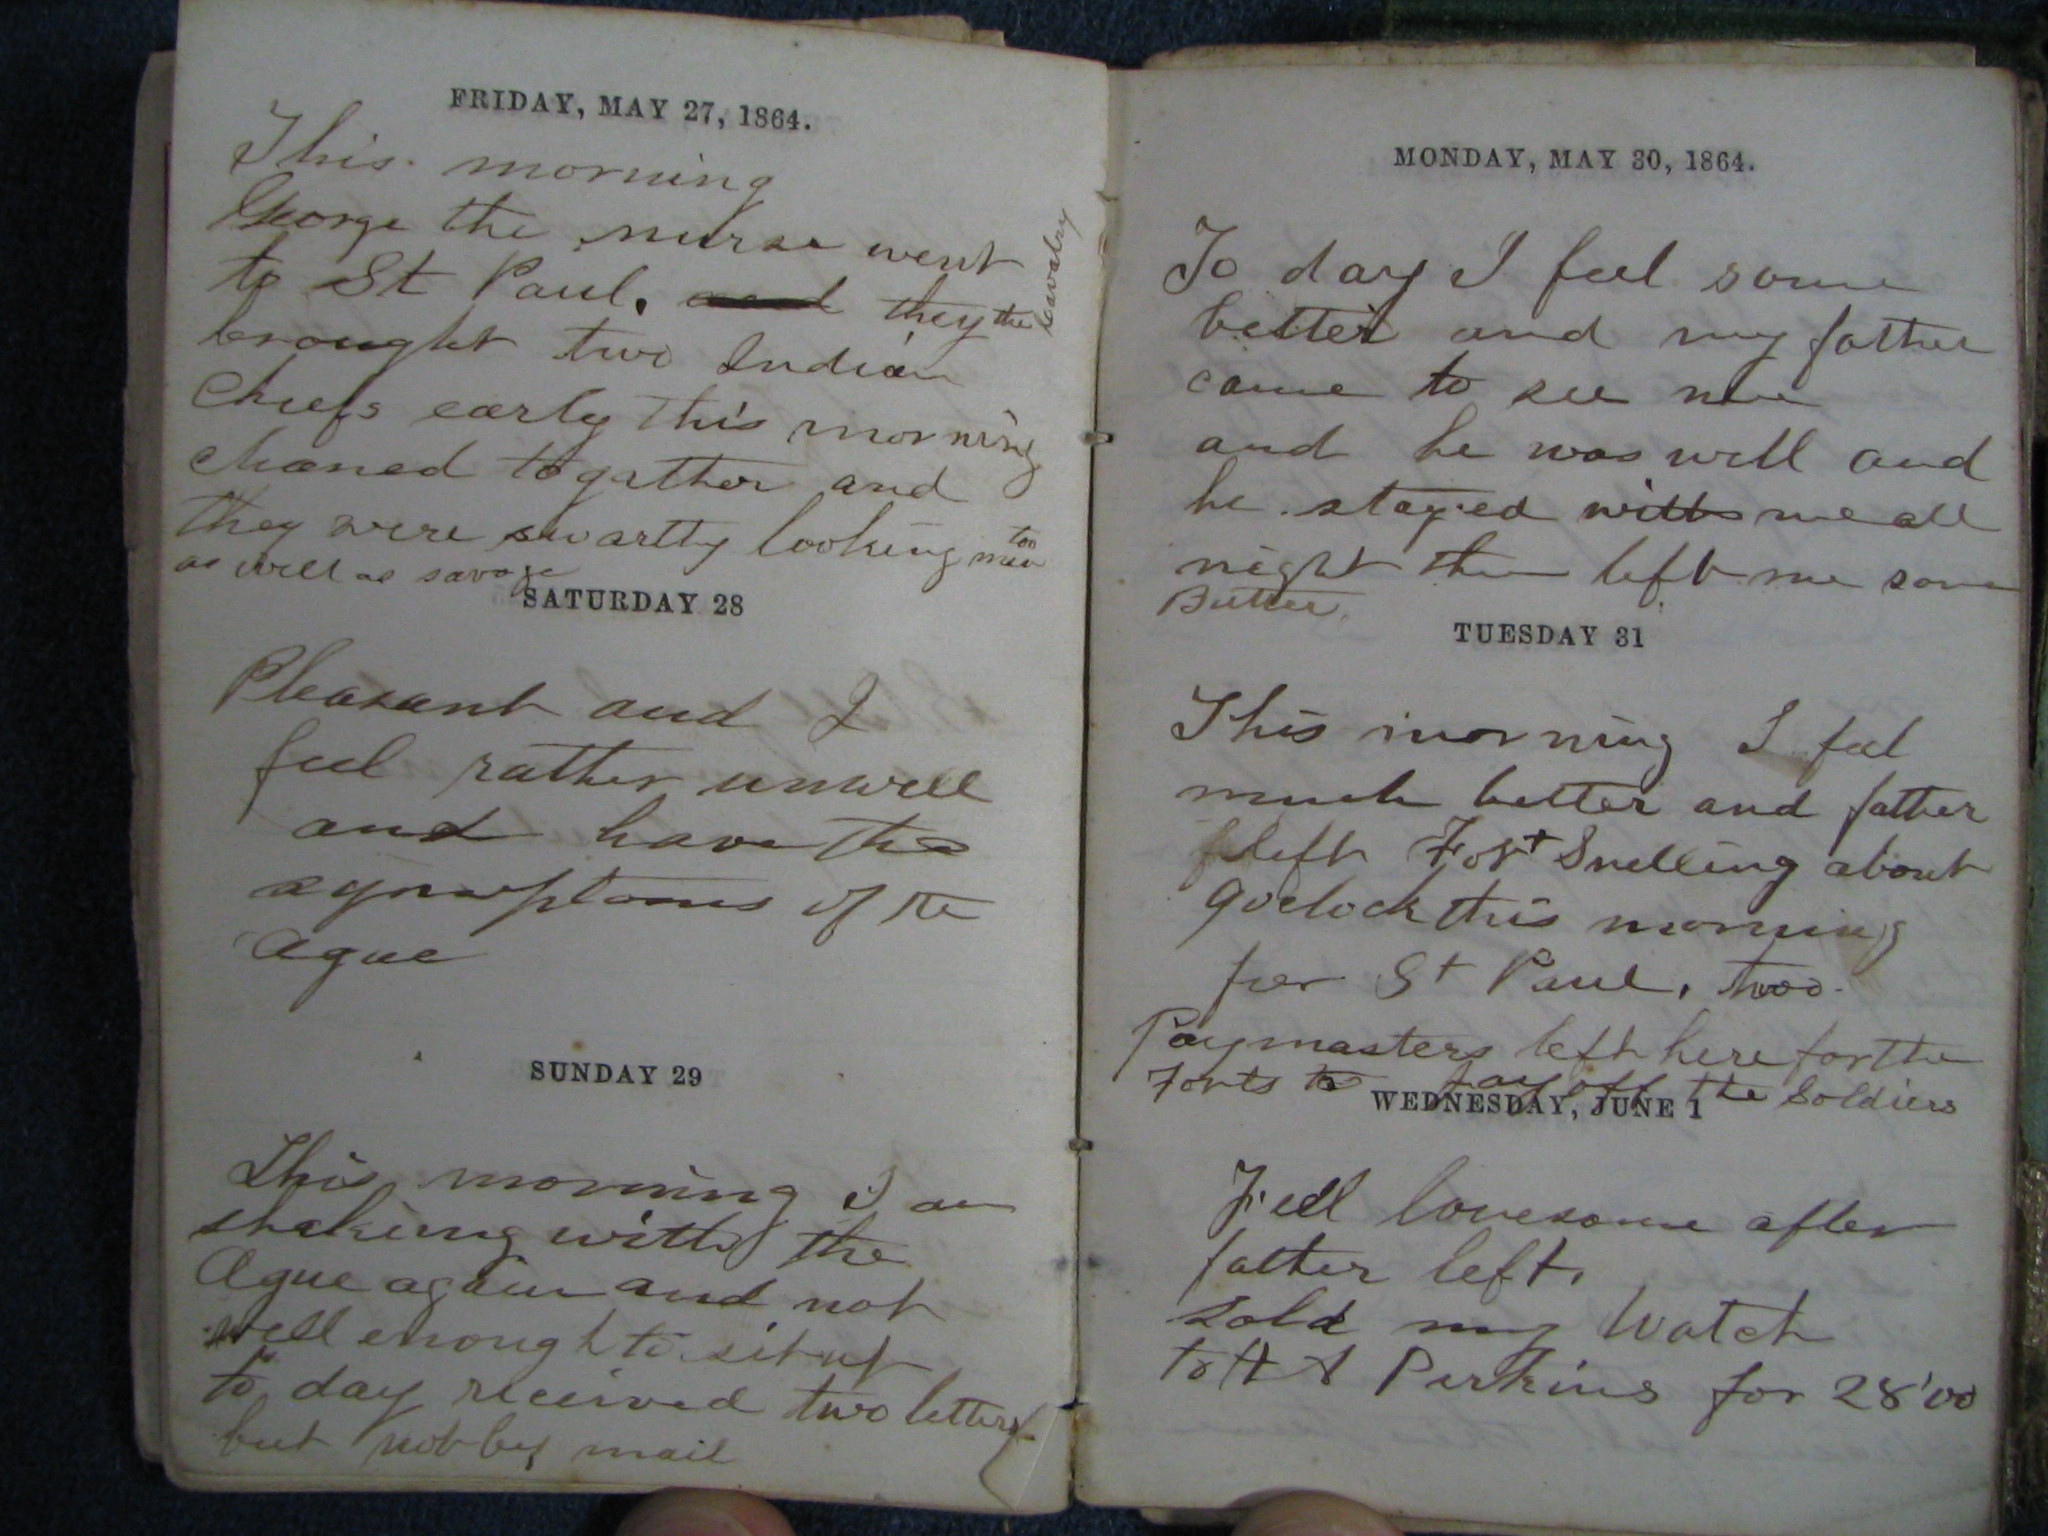 FRIDAY, MAY 27, 1864.
This morning
George the nurse went
to St Paul. and they the
cavalry
brought two Indian
Chiefs early this morning
chaened togather and
they were swartty looking men
too
as well as savage
SATURDAY 28
Pleasant and I
feel rather unwell
and have the
symptoms of the
Ague
SUNDAY 29
This morning I am
shaking with the
Ague again and not
well enough to sit up
to day received two letters
but not by mail
MONDAY, MAY 30, 1864.
To day I feel some
better and my father
came to see me
and he was well and
he stayed with me all
night then left me some
Butter.
TUESDAY 31
This morning I feel
much better and father
left Fort Snelling about
9 oclock this morning
for St Paul. two
Paymasters left here for the
Forts to pay off the Soldiers
WEDNESDAY, JUNE 1
Feell lonesome after
father left.
Sold my Watch
to A A Perkins for 28'00